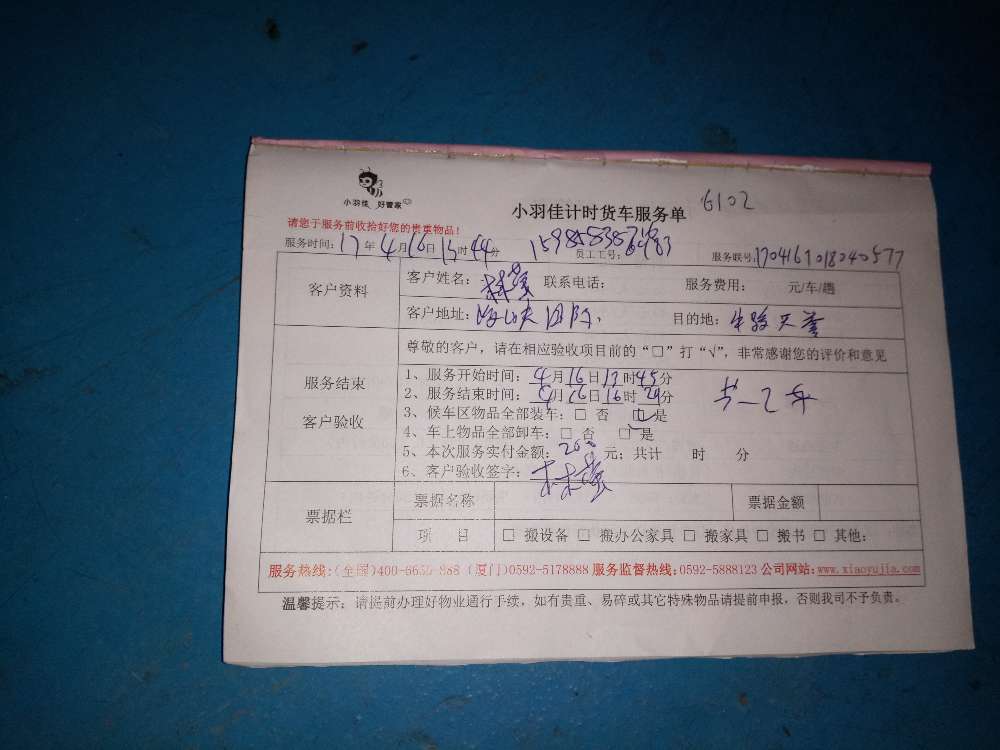 小羽佳 好管家
小羽佳计时货车服务单 6102
请您于服务前收拾好您的贵重物品!
服务时间: 17年4月16日15时44分 员工工号: 服务联号:
客户资料
客户姓名: 林 联系电话: 服务费用: 元/车/趟
客户地址: 目的地:
尊敬的客户,请在相应验收项目前的“□”打“√”,非常感谢您的评价和意见
服务结束
客户验收
1、服务开始时间: 4月16日 时45分
2、服务结束时间: 月16日16时 分
3、候车区物品全部装车: □ 否 □ 是
4、车上物品全部卸车: □ 否 □ 是
5、本次服务实付金额: 元; 共计 时 分
6、客户验收签字: 林
票据栏
票据名称 票据金额
项 目 □ 搬设备 □ 搬办公家具 □ 搬家具 □ 搬书 □ 其他:
服务热线:(全国) (厦门)0592-5178888 服务监督热线:0592-5888123 公司网站:www.xiaoyujia.com
温馨提示: 请提前办理好物业通行手续,如有贵重、易碎或其它特殊物品请提前申报,否则我司不予负责。